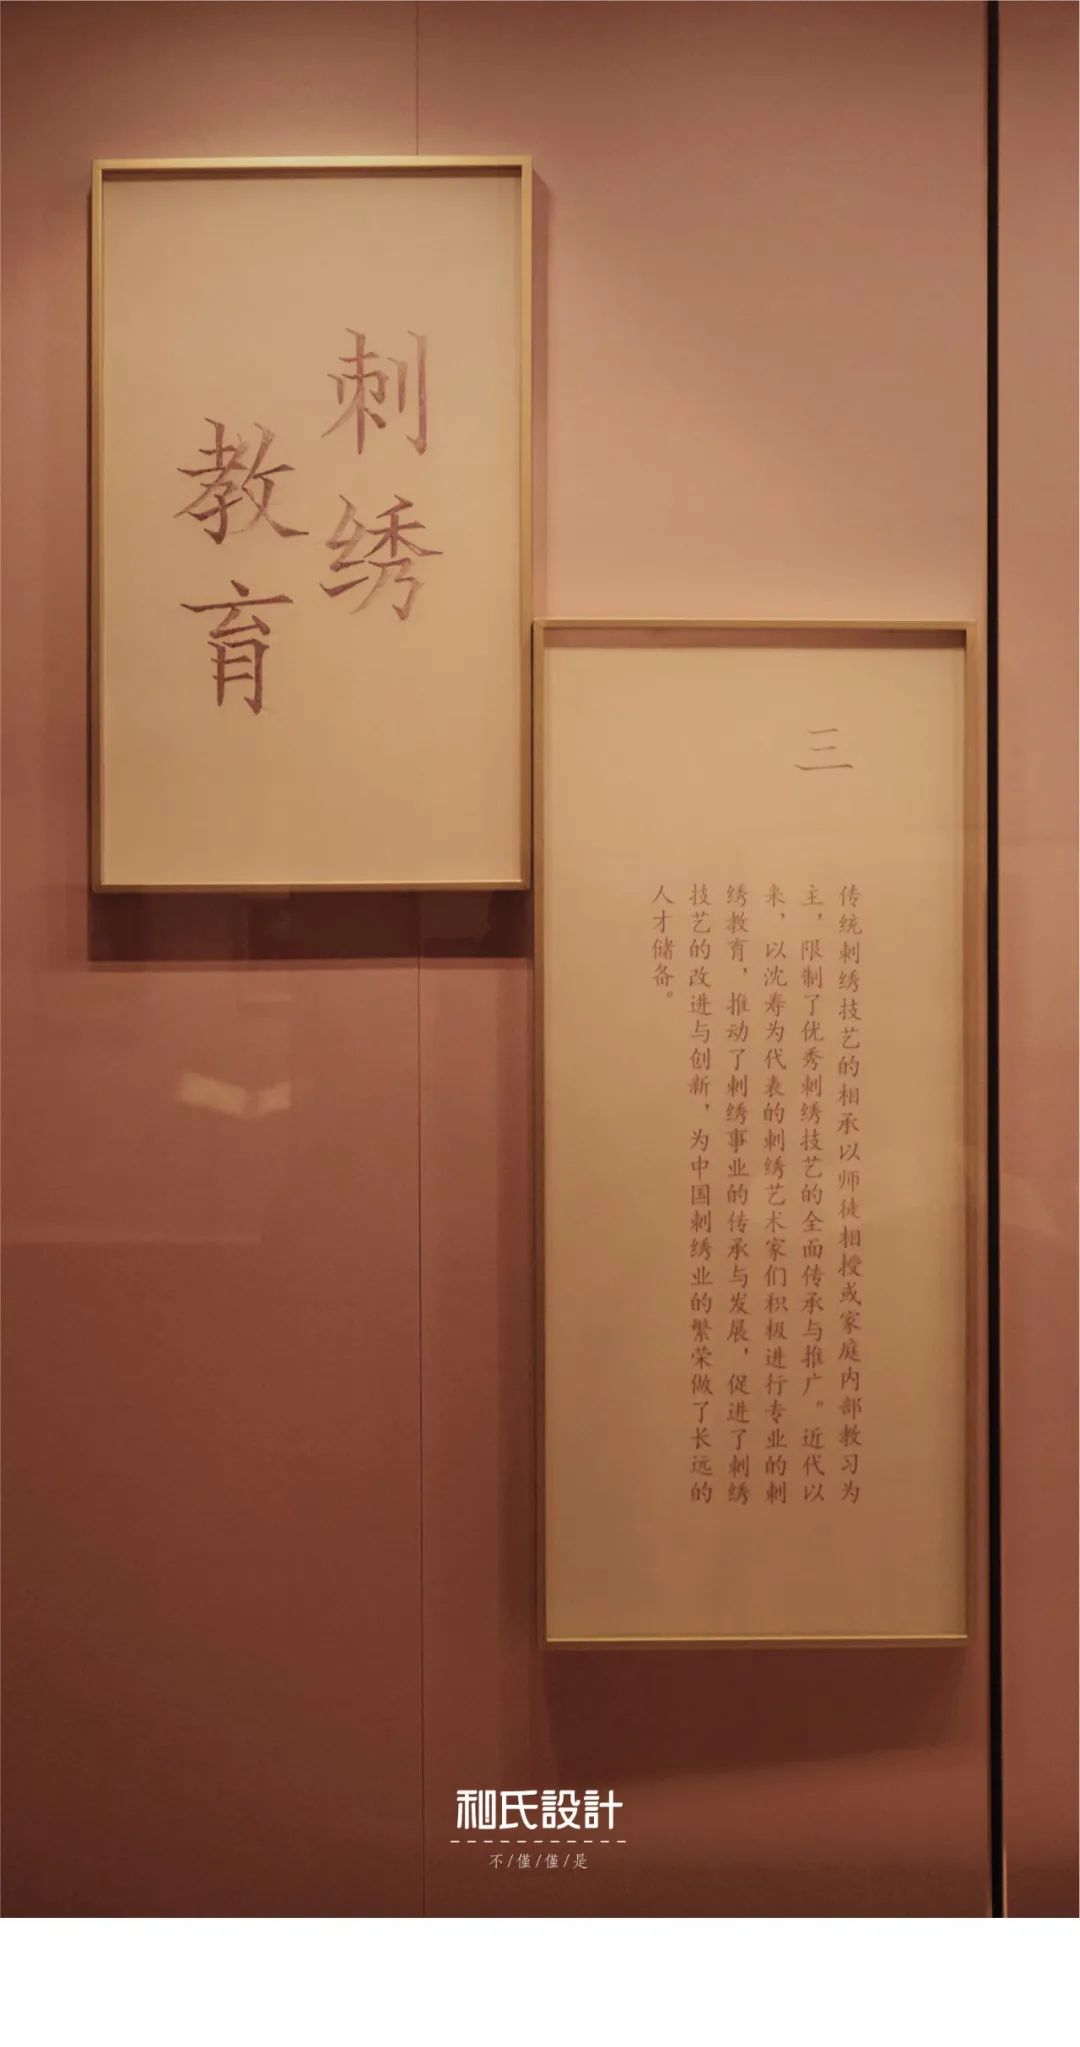 刺绣
教育
三
传统刺绣技艺的相承以师徒相授或家庭内部教习为
主，限制了优秀刺绣技艺的全面传承与推广。近代以
来，以沈寿为代表的刺绣艺术家们积极进行专业的刺
绣教育，推动了刺绣事业的传承与发展，促进了刺绣
技艺的改进与创新，为中国刺绣业的繁荣做了长远的
人才储备。
和氏設計
不/僅/僅/是